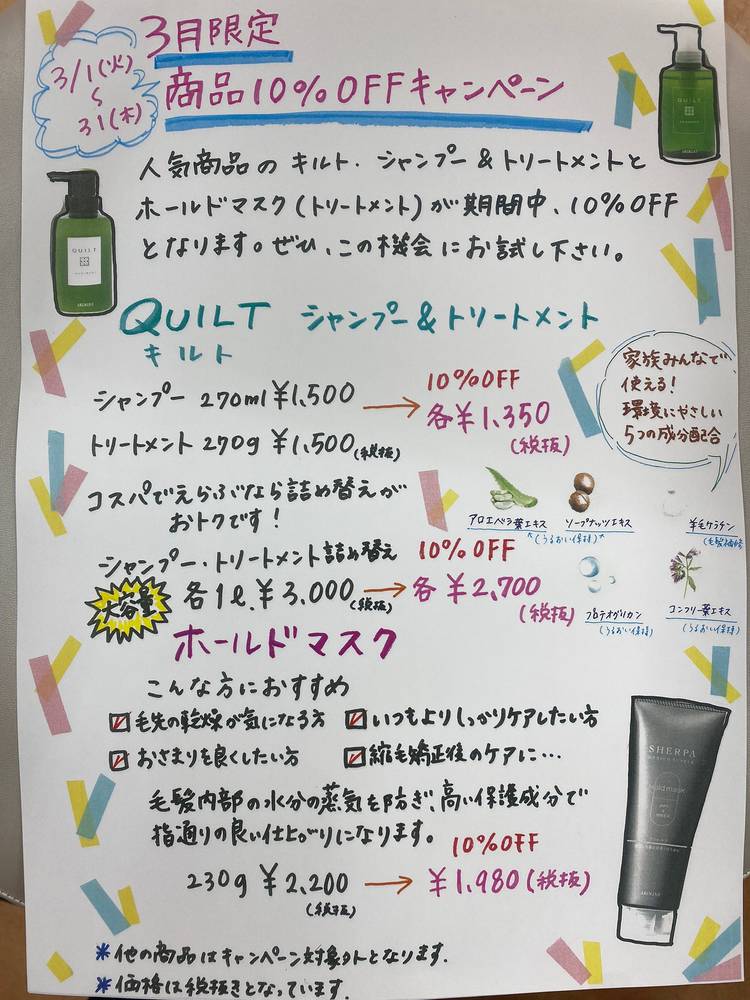 3/1(火)
〜
31(木)
3月限定
商品10%OFFキャンペーン
QUILT
人気商品の キルト.シャンプー&トリートメントと
ホールドマスク(トリートメント)が期間中、10%OFF
となります。ぜひ、この機会にお試し下さい。
QUILT
QUILT シャンプー&トリートメント
キルト
家族みんなで
使える!
環境にやさしい
5つの成分配合
シャンプー 270ml ¥1,500
10%OFF
各¥1,350
(税抜)
トリートメント 270g ¥1,500(税抜)
コスパでえらぶなら詰め替えが
おトクです!
アロエベラ葉エキス ソープナッツエキス
(うるおい保持)
羊毛ケラチン
(毛髪補修
シャンプー・トリートメント詰め替え
大容量
各1ℓ.¥3,000
(税抜)
10%OFF
各¥2,700
(税抜)
プロテオグリカン
(うるおい保持)
コンフリー葉エキス
(うるおい保持)
ホールドマスク
こんな方におすすめ
毛先の乾燥が気になる方
いつもよりしっかりケアしたい方
おさまりを良くしたい方
縮毛矯正後のケアに…
毛髪内部の水分の蒸気を防ぎ、高い保護成分で
指通りの良い仕上がりになります。
230g ¥2,200
(税抜)
10%OFF
¥1,980(税抜)
SHERPA
hold mask
*他の商品はキャンペーン対象外となります.
*価格は税抜きとなっています.